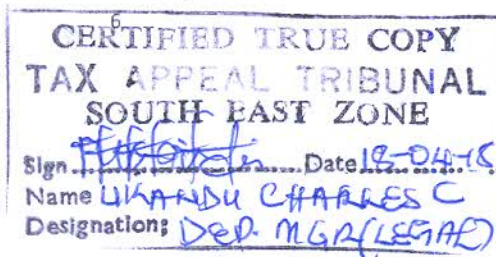 6
CERTIFIED TRUE COPY
TAX APPEAL TRIBUNAL
SOUTH EAST ZONE
Sign Date 18-04-18
Name UKANDU CHARLES C
Designation: DEP. MGR (LEGAL)